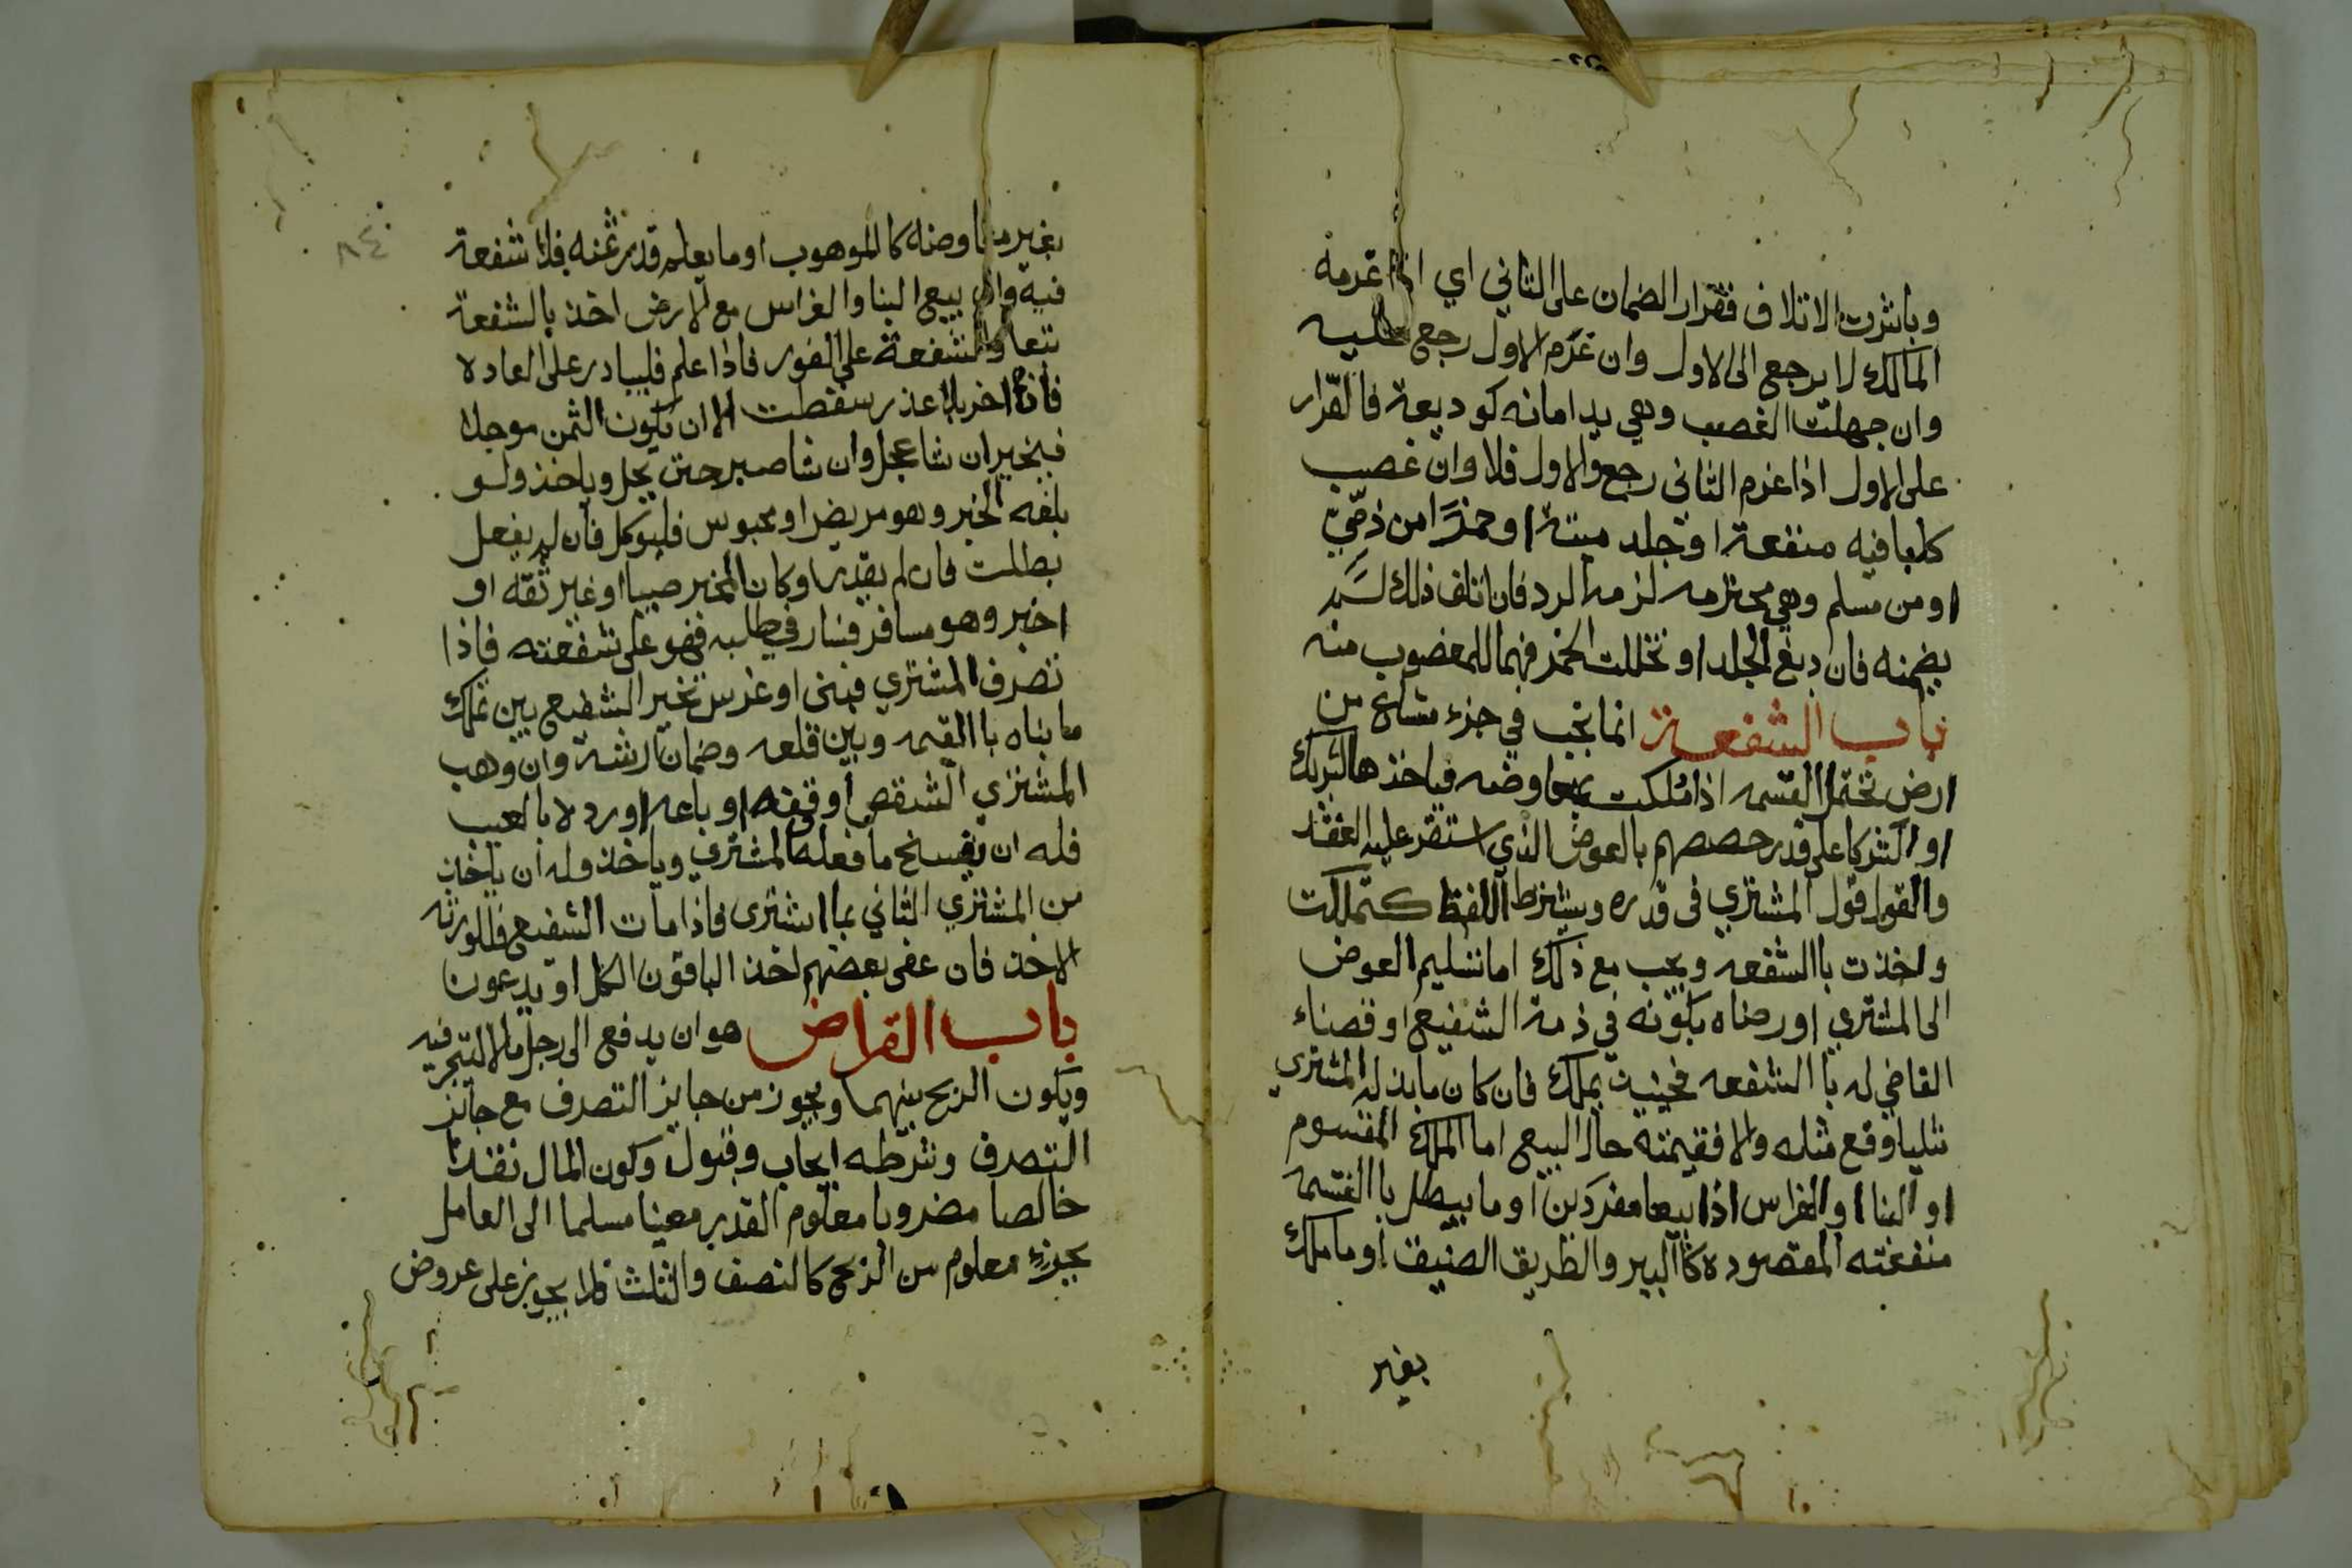 وباشرت الاتلاف فقرار الضمان على الثاني اي اذا غرمه
المالك لا يرجع الى الاول وان غرم الاول رجع عليه
وان جهلت الغصب وهي يد امانه كوديعة فالقرار
على الاول اذا غرم الثاني رجع والاول فلا وان غصب
كلبا فيه منفعة او جلد ميتة او خمرًا من ذمّيٍ
او من مسلم وهي محترمه لزمه الرد فان اتلف ذلك لم
يضمنه فان دبغ الجلد او تخللت الخمر فهما للمغصوب منه
باب الشفعة انما تجب في جزء مشاع من
ارض تحتمل القسمه اذا ملكت بمعاوضه فياخذها الشريك
او الشركا على قدر حصصهم بالعوض الذي استقر عليه العقد
والقول قول المشتري في قدره ويشترط اللفظ كتملكت
واخذت باالشفعه ويجب مع ذلك اما تسليم العوض
الى المشتري او رضاه بكونه في ذمة الشفيع او قضاء
القاضي له باالشفعه فحينيذ يملك فان كان ما بذله المشتري
مثليا دفع مثله والا فقيمته حال البيع اما الملك المقسوم
او البنا او الغراس اذا بيعا مفردين او ما يبطل باالقسمه
منفعته المقصوده كاالبير والطريق الضيق او ما ملك
بغير
٨٤
بغير معاوضه كاالموهوب او ما يعلم قدر ثمنه فلا شفعة
فيه وان بيع البنا والغراس مع الارض اخذ بالشفعة
تبعا والشفعة على الفور فاذا علم فليبادر على العاده
فان اخر بلا عذر سقطت الا ان يكون الثمن موجلا
فيتخير ان شا عجل وان شا صبر حتى يحل وياخذ ولو
بلغه الخبر وهو مريض او محبوس فليوكل فان لم يفعل
بطلت فان لم يقدر او كان المخبر صبيا او غير ثقه او
اخبر وهو مسافر فسار في طلبه فهو على شفعته فاذا
تصرف المشتري فبنى او غرس تخير الشفيع بين تملك
ما بناه باالقيمه وبين قلعه وضمان ارشه وان وهب
المشتري الشقص او وقفه او باعه او رده بالعيب
فله ان يفسخ ما فعله المشتري وياخذ وله ان ياخذ
من المشتري الثاني بما اشترى فاذا مات الشفيع فللورثه
الاخذ فان عفى بعضهم اخذ الباقون الكل او يدعون
باب القراض هو ان يدفع الى رجل مالا ليتجر فيه
ويكون الربح بينهما ويجوز من جايز التصرف مع جايز
التصرف وشرطه ايجاب وقبول وكون المال نقدا
خالصا مضروبا معلوم القدر معينا مسلما الى العامل
بجزء معلوم من الربح كالنصف والثلث فلا يجوز على عروض